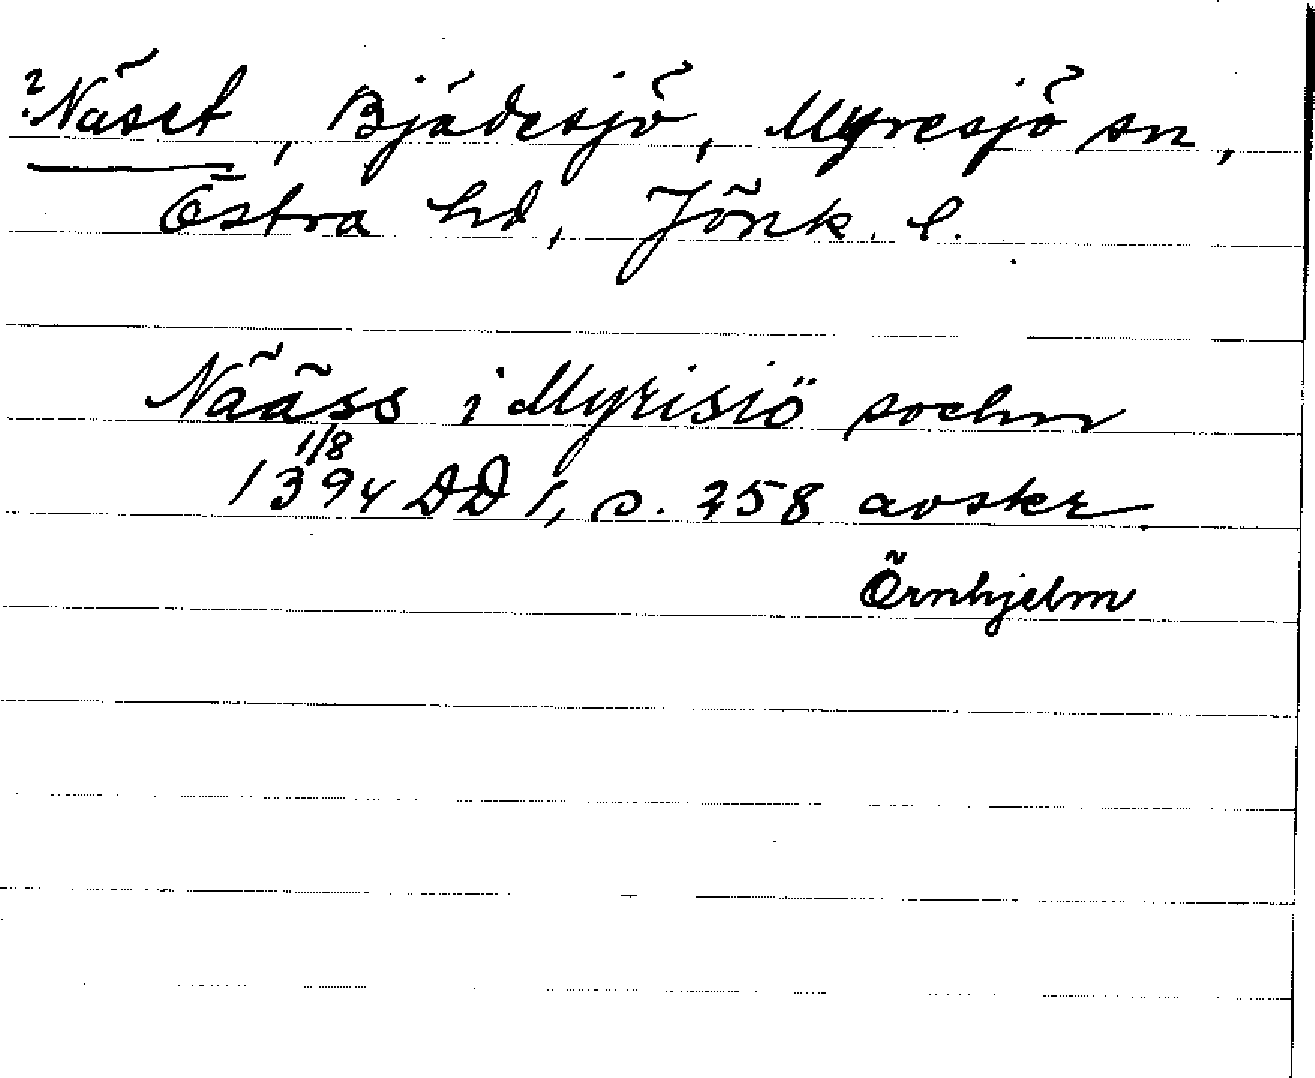 ?Näset, Bjädesjö, Myresjö sn,
Östra hd, Jönk. l.
Nääss i Myrisiö sochn
1/8
1394 DD 1, s. 258 avskr.
Örnhjelm